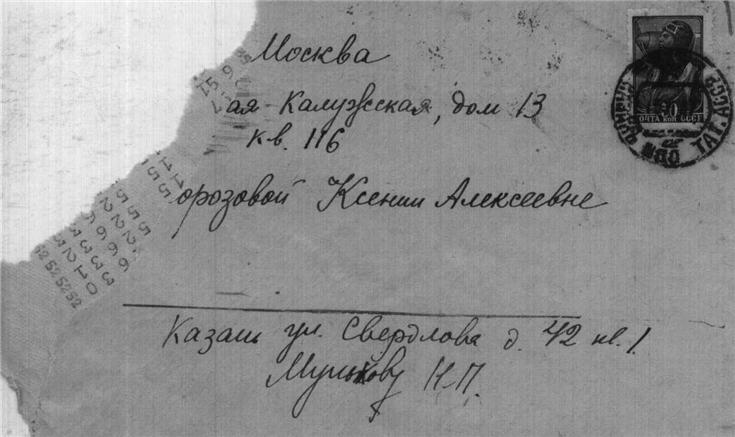 Москва
ая-Калужская, дом 13
кв. 116
орозовой Ксении Алексеевне
Казань ул. Свердлова д. 42 кв. 1.
Н.П.
ПОЧТА коп СССР
ТАТ. АССР